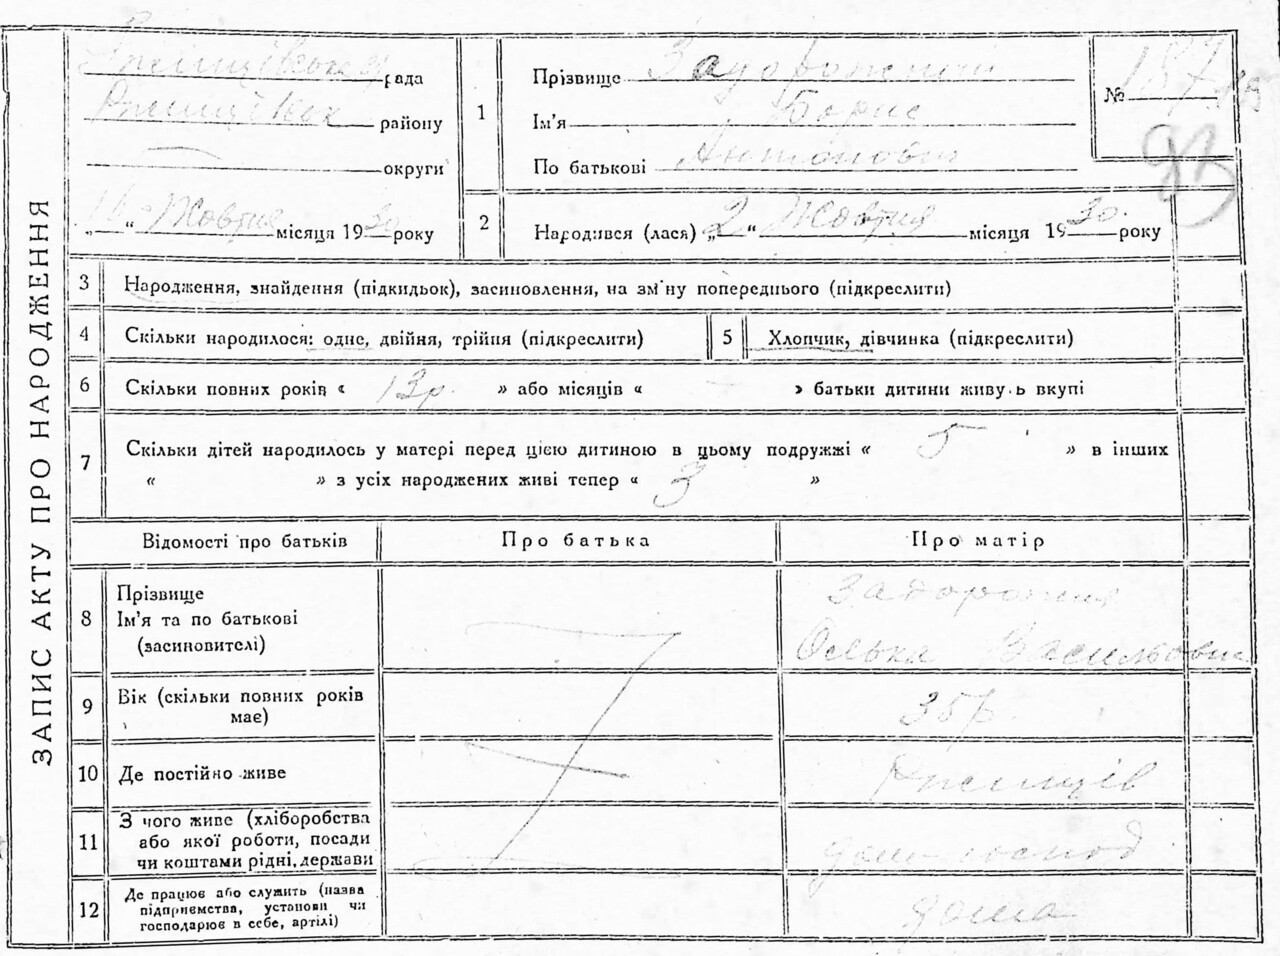 ЗАПИС АКТУ ПРО НАРОДЖЕННЯ
Ржищівська рада
Ржищівськ району
округи
„16“ Жовтня місяця 1930 року
1
Прізвище Задорожний
Ім'я Борис
По батькові Антонович
№ 187
2
Народився (лася) „2“ Жовтня місяця 1930. року
3 Народження, знайдення (підкидьок), засиновлення, на зм'ну попереднього (підкреслити)
4 Скільки народилося: одне, двійня, трійня (підкреслити)
5 Хлопчик, дівчинка (підкреслити)
6 Скільки повних років « 13р. » або місяців « — » батьки дитини живуть вкупі
7 Скільки дітей народилось у матері перед цією дитиною в цьому подружжі « 5 » в інших
« » з усіх народжених живі тепер « 3 »
Відомості про батьків Про батька Про матір
8 Прізвище Задорожня
Ім'я та по батькові
(засиновителі) Васильовна
9 Вік (скільки повних років 35р.
має)
10 Де постійно живе Ржищів
11 З чого живе (хліборобства
або якої роботи, посади
чи коштами рідні, держави
12 Де працює або служить (назва
підприємства, установи чи
господарює в себе, артілі) дома